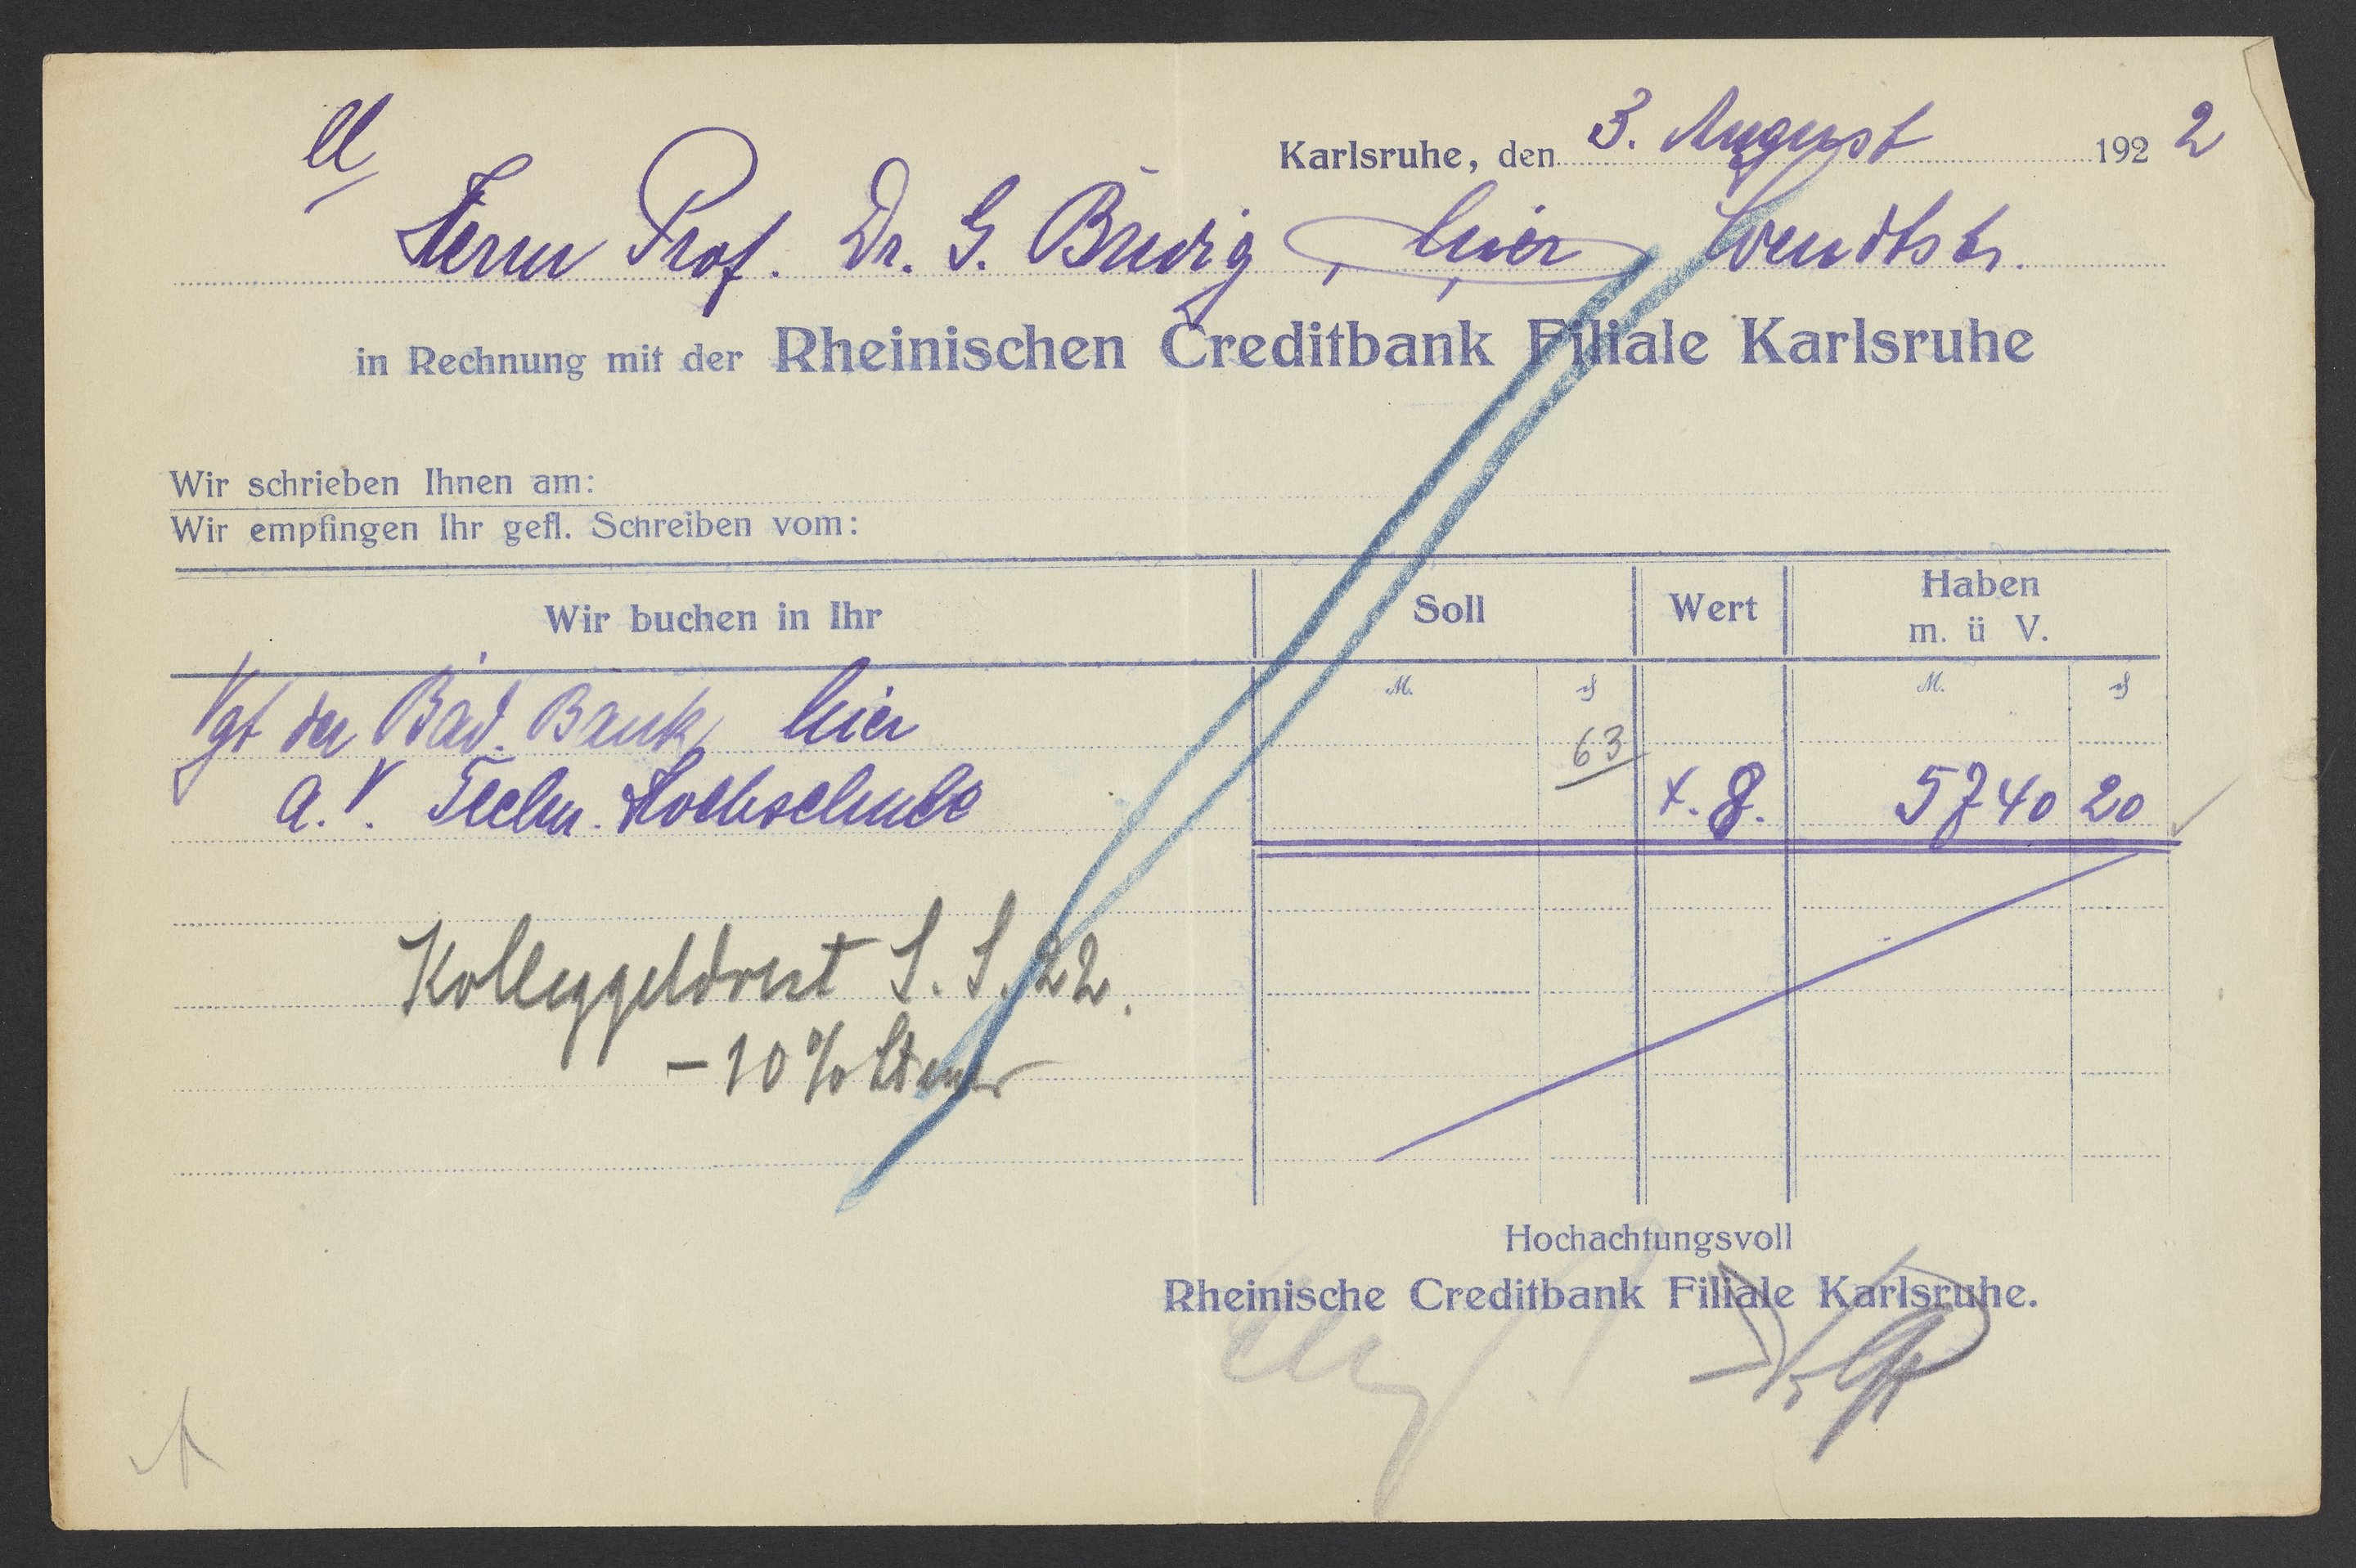 Karlsruhe, den 3. August 1922
Herrn Prof. Dr. G. Bredig, hier, Wendtstr.
in Rechnung mit der Rheinischen Creditbank Filiale Karlsruhe
Wir schrieben Ihnen am:
Wir empfingen Ihr gefl. Schreiben vom:
Wir buchen in Ihr Soll Wert Haben
m. ü V.
M. ₰ M. ₰
Vgt der Bad. Bank, hier
63
a. V. Techn. Hochschule 8. 5740 20
Kolleggeldrest S. S. 22.
- 10% Steuer
Hochachtungsvoll
Rheinische Creditbank Filiale Karlsruhe.